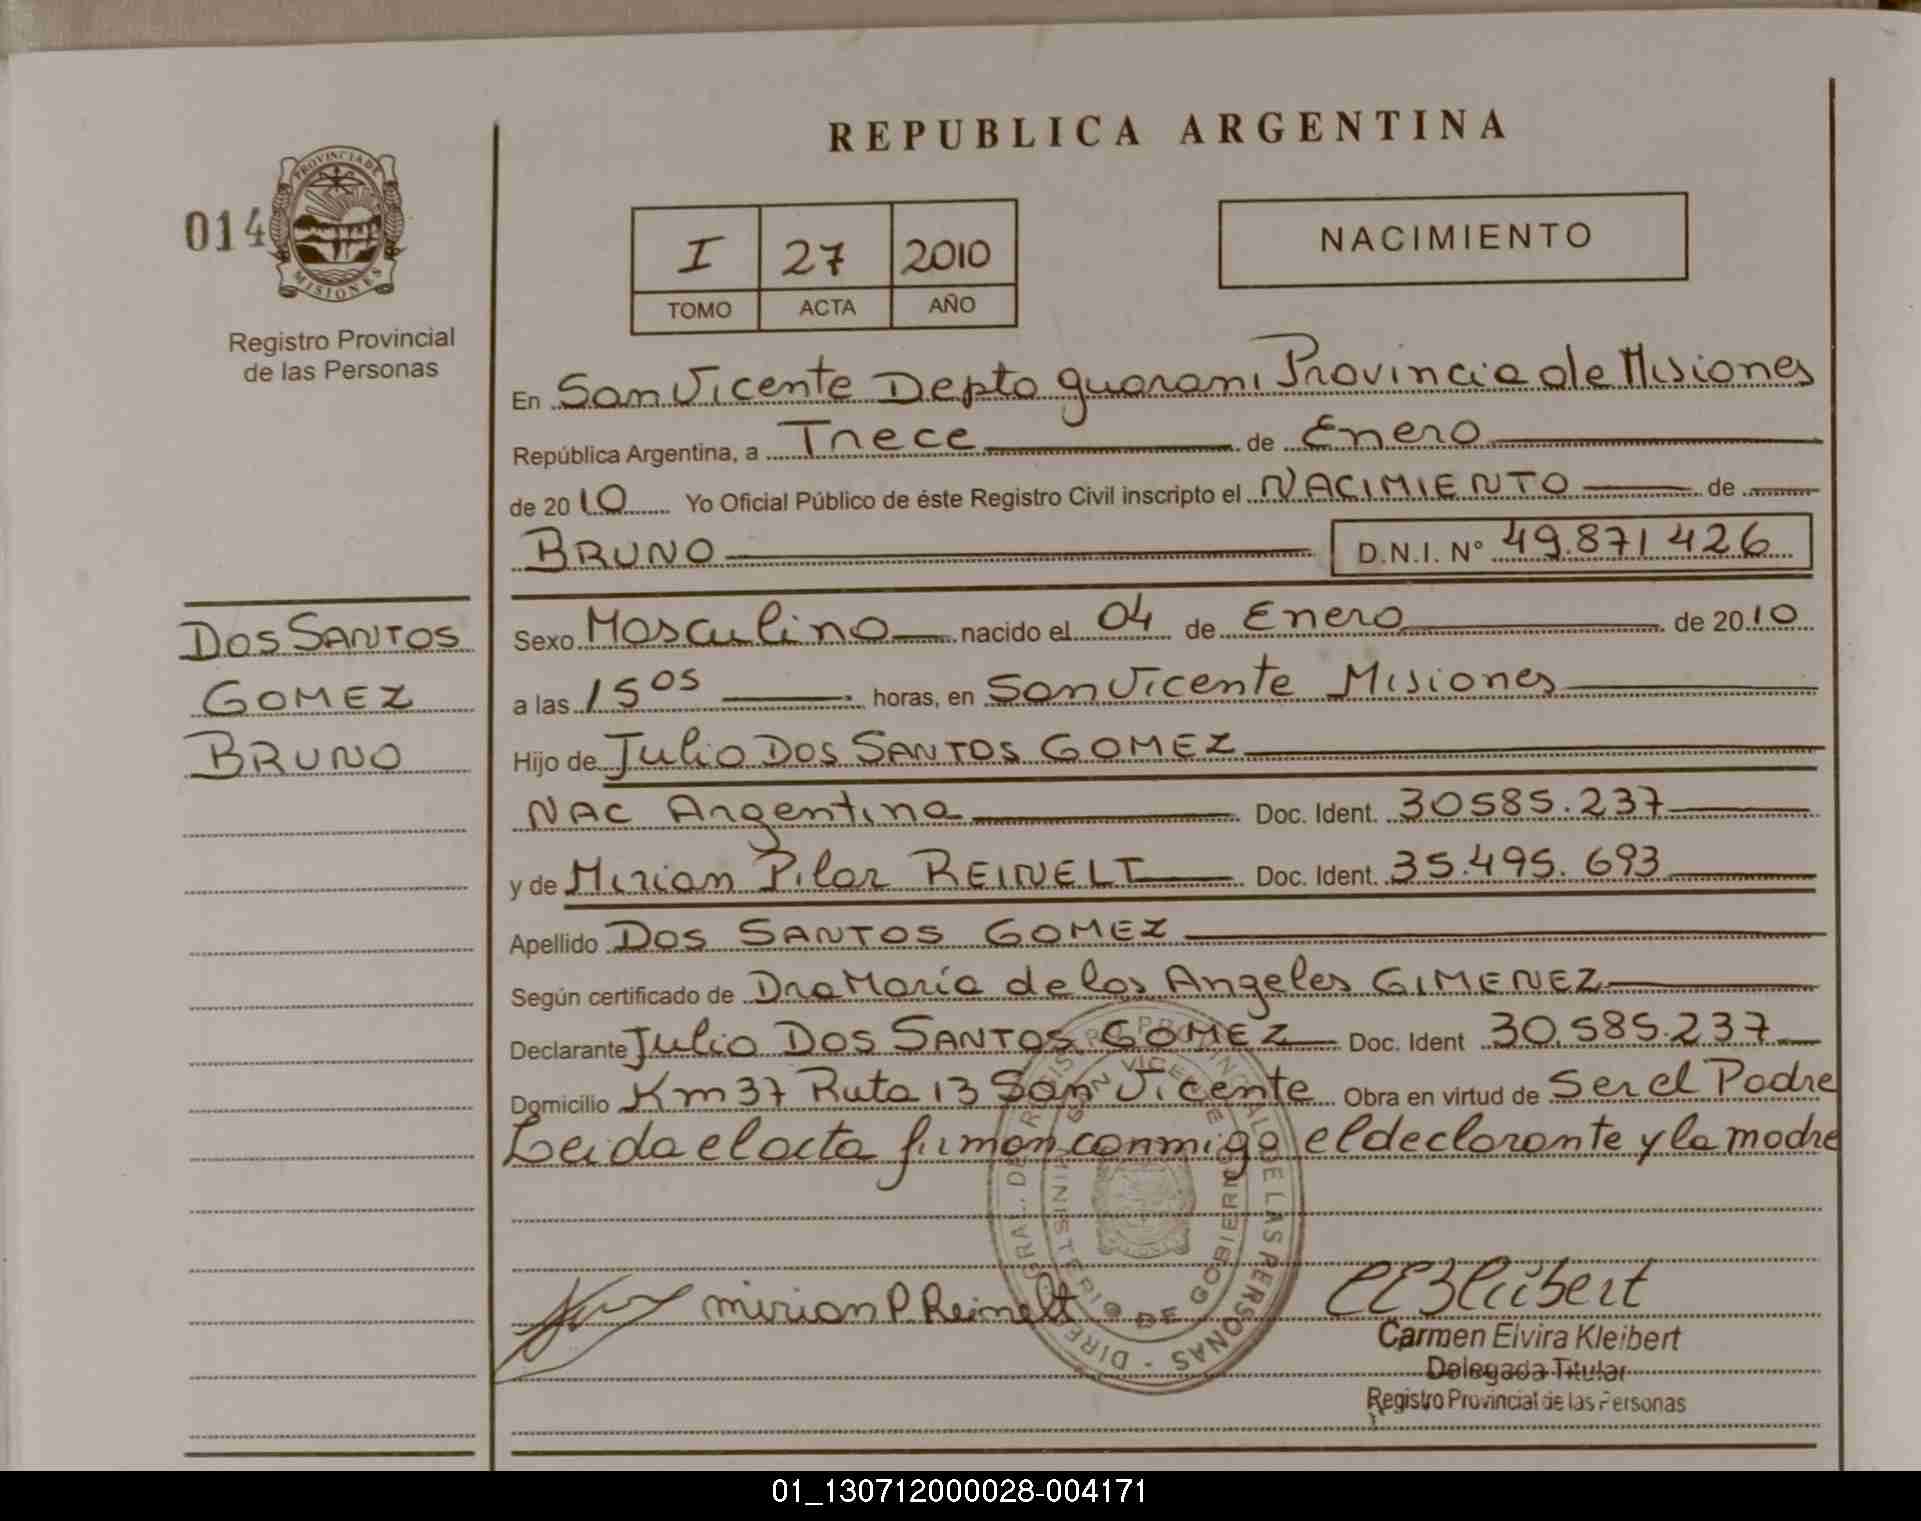 REPUBLICA ARGENTINA
014
PROVINCIA DE
MISIONES
Registro Provincial
de las Personas
I 27 2010
TOMO ACTA AÑO
NACIMIENTO
En San Vicente Depto guarani Provincia de Misiones
República Argentina, a Trece de Enero
de 2010 Yo Oficial Público de éste Registro Civil inscripto el NACIMIENTO de
BRUNO D.N.I. Nº 49.871426
DOS SANTOS
GOMEZ
BRUNO
Sexo Masculino nacido el 04 de Enero de 2010
a las 15 05 horas, en San Vicente Misiones
Hijo de Julio DOS SANTOS GOMEZ
NAC Argentina Doc. Ident. 30585.237
y de Mirian Pilar REINELT Doc. Ident. 35.495.693
Apellido DOS SANTOS GOMEZ
Según certificado de Dra María de los Angeles GIMENEZ
Declarante Julio DOS SANTOS GOMEZ Doc. Ident 30.585.237
Domicilio Km 37 Ruta 13 San Vicente Obra en virtud de Ser el Padre
Leida el acta firman conmigo el declarante y la madre
MINISTERIO DE GOBIERNO
SAN VICENTE
DE LAS PERSONAS
mirian P. Reinelt
CEKleibert
Carmen Elvira Kleibert
Delegada Titular
Registro Provincial de las Personas
01_130712000028-004171